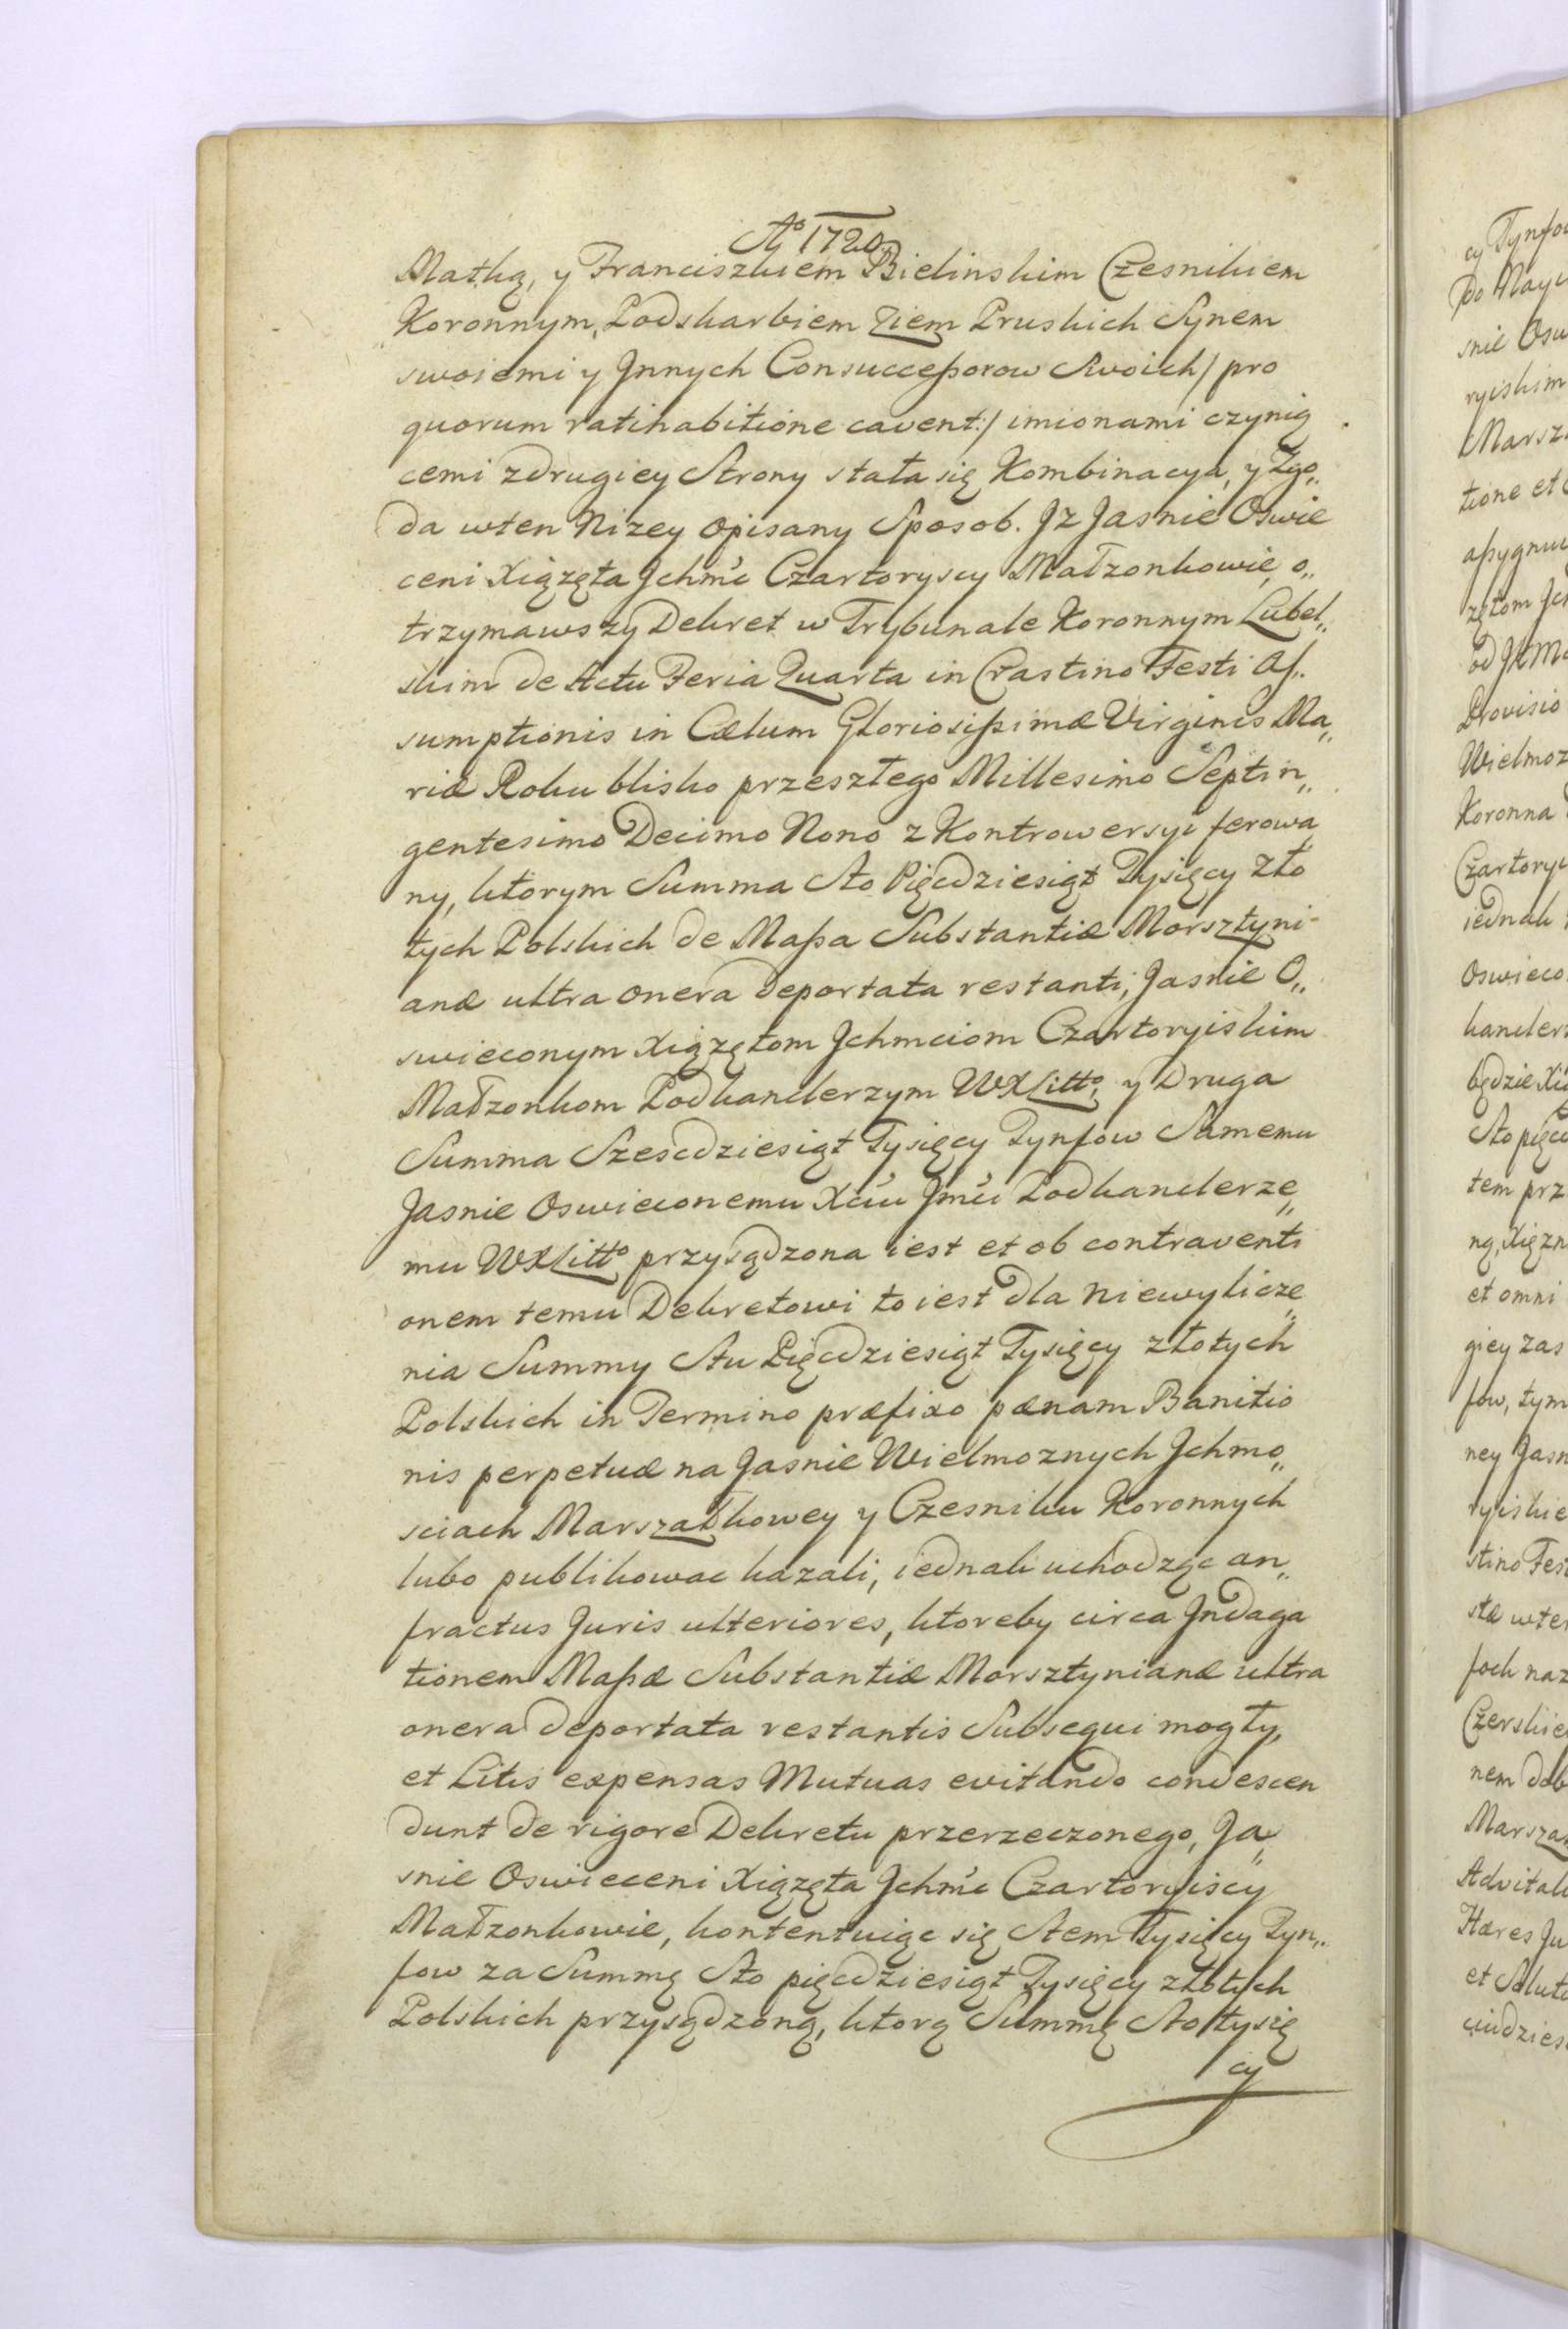 Ao 1720
Matką, y Franciszkiem Bielinskim Czesnikiem
Koronnym, Podskarbiem Ziem Pruskich Synem
swoiemi y Jnnych Consuccessorow Swoich / pro
quorum ratihabitione cavent:/ imionami czynią
cemi zdrugiey Strony stała się Kombinacya, y Zgo„
da wten Nizey opisany Sposob. Jz Jasnie Oswie
ceni Xiązęta Jchmć Czartoryscy Małzonkowie, o„
trzymawszy Dekret w Trybunale Koronnym Lubel„
skim de Actu Feria Quarta in Crastino Festi As„
sumptionis in Cælum Gloriosissimæ Virginis Ma„
riæ Roku blisko przeszłego Millesimo Septin„
gentesimo Decimo Nono z Kontrowersyi ferowa
ny, ktorym Summa Sto Pięcdziesiąt Tysięcy Zło
tych Polskich de Massa Substantiæ Morsztyni-
anæ ultra onera deportata restanti, Jasnie O„
swieconym Xiązętom Jchmciom Czartoryiskim
Małzonkom Podkanclerzym WXLitto, y Druga
Summa Szescdziesiąt Tysięcy Tynfow Samemu
Jasnie Oswieconemu Xciu Jmci Podkanclerze„
mu WXLitto przysądzona iest et ob contraventi
onem temu Dekretowi to iest dla niewylicze„
nia Summy Stu Pięcdziesiąt Tysięcy złotych
Polskich in Termino præfixo pænam Banitio
nis perpetuæ na Jasnie Wielmoznych Jchmo„
sciach Marszałkowey y Czesniku Koronnych
lubo publikowac kazali, iednak uchodząc an„
fractus Juris ulteriores, ktoreby circa Jndaga
tionem Massæ Substantiæ Morsztynianæ ultra
onera deportata restantis Subsequi mogły,
et Litis expensas Mutuas evitando condescen
dunt de rigore Dekretu przerzeczonego, Ja„
snie Oswieceni Xiązęta Jchmć Czartoryiscy
Małzonkowie, kontentuiąc się Stem Tysięcy Tyn„
fow za Summę Sto pięcdziesiąt Tysięcy złotych
Polskich przysądzoną, ktorą Summę Sto tysię
cy
cy
Do
snie
ryiskim
tione et
od
Provisio
Wielmoz
Koronna
iednak
Oswieco
będzie
tem prz
et omni
giey zas
fow, tym
ney Jasn
ryiskie
stino Fes
foch naz
Czerskie
nem dob
Hæres Ju